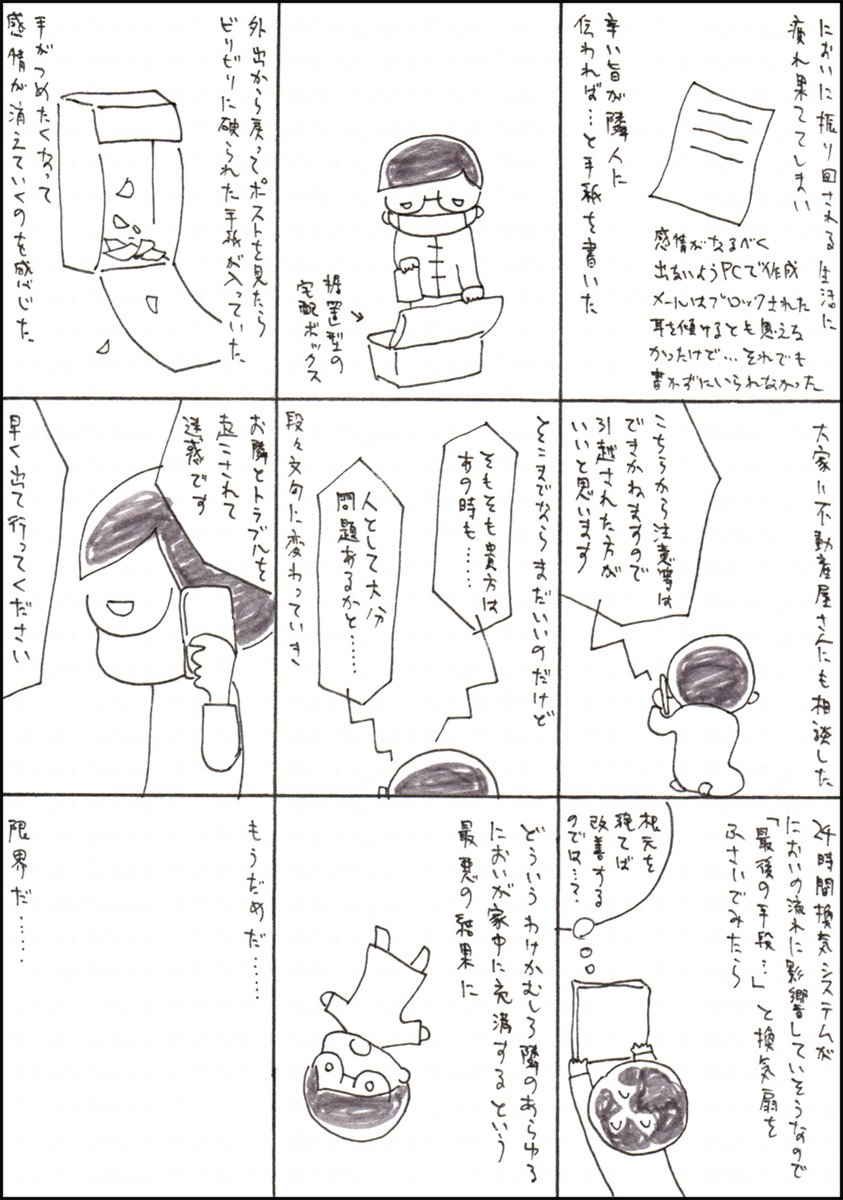 においに振り回される生活に
疲れ果ててしまい
辛い旨が隣人に
伝われば…と手紙を書いた
感情がなるべく
出ないようPCで作成
メールはブロックされた
耳を傾けるとも思えな
かったけど…それでも
書かずにいられなかった
据置型の
宅配ボックス
外出から戻ってポストを見たら
ビリビリに破られた手紙が入っていた
手がつめたくなって
感情が消えていくのを感じた
大家に不動産屋さんにも相談した
こちらから注意等は
できかねますので
引越された方が
いいと思います
とそこまでならまだいいのだけど
そもそも貴方は
あの時も……
人として大分
問題あるかと……
段々文句に変わっていき
お隣とトラブルを
起こされて
迷惑です
早く出て行ってください
24時間換気システムが
においの流れに影響していそうなので
「最後の手段…」と換気扇を
ふさいでみたら
根元を
絶てば
改善する
のでは…?
どういうわけかむしろ隣のあらゆる
においが家中に充満するという
最悪の結果に
もうだめだ……
限界だ……
@doro_yuru ©Yuki Sekine